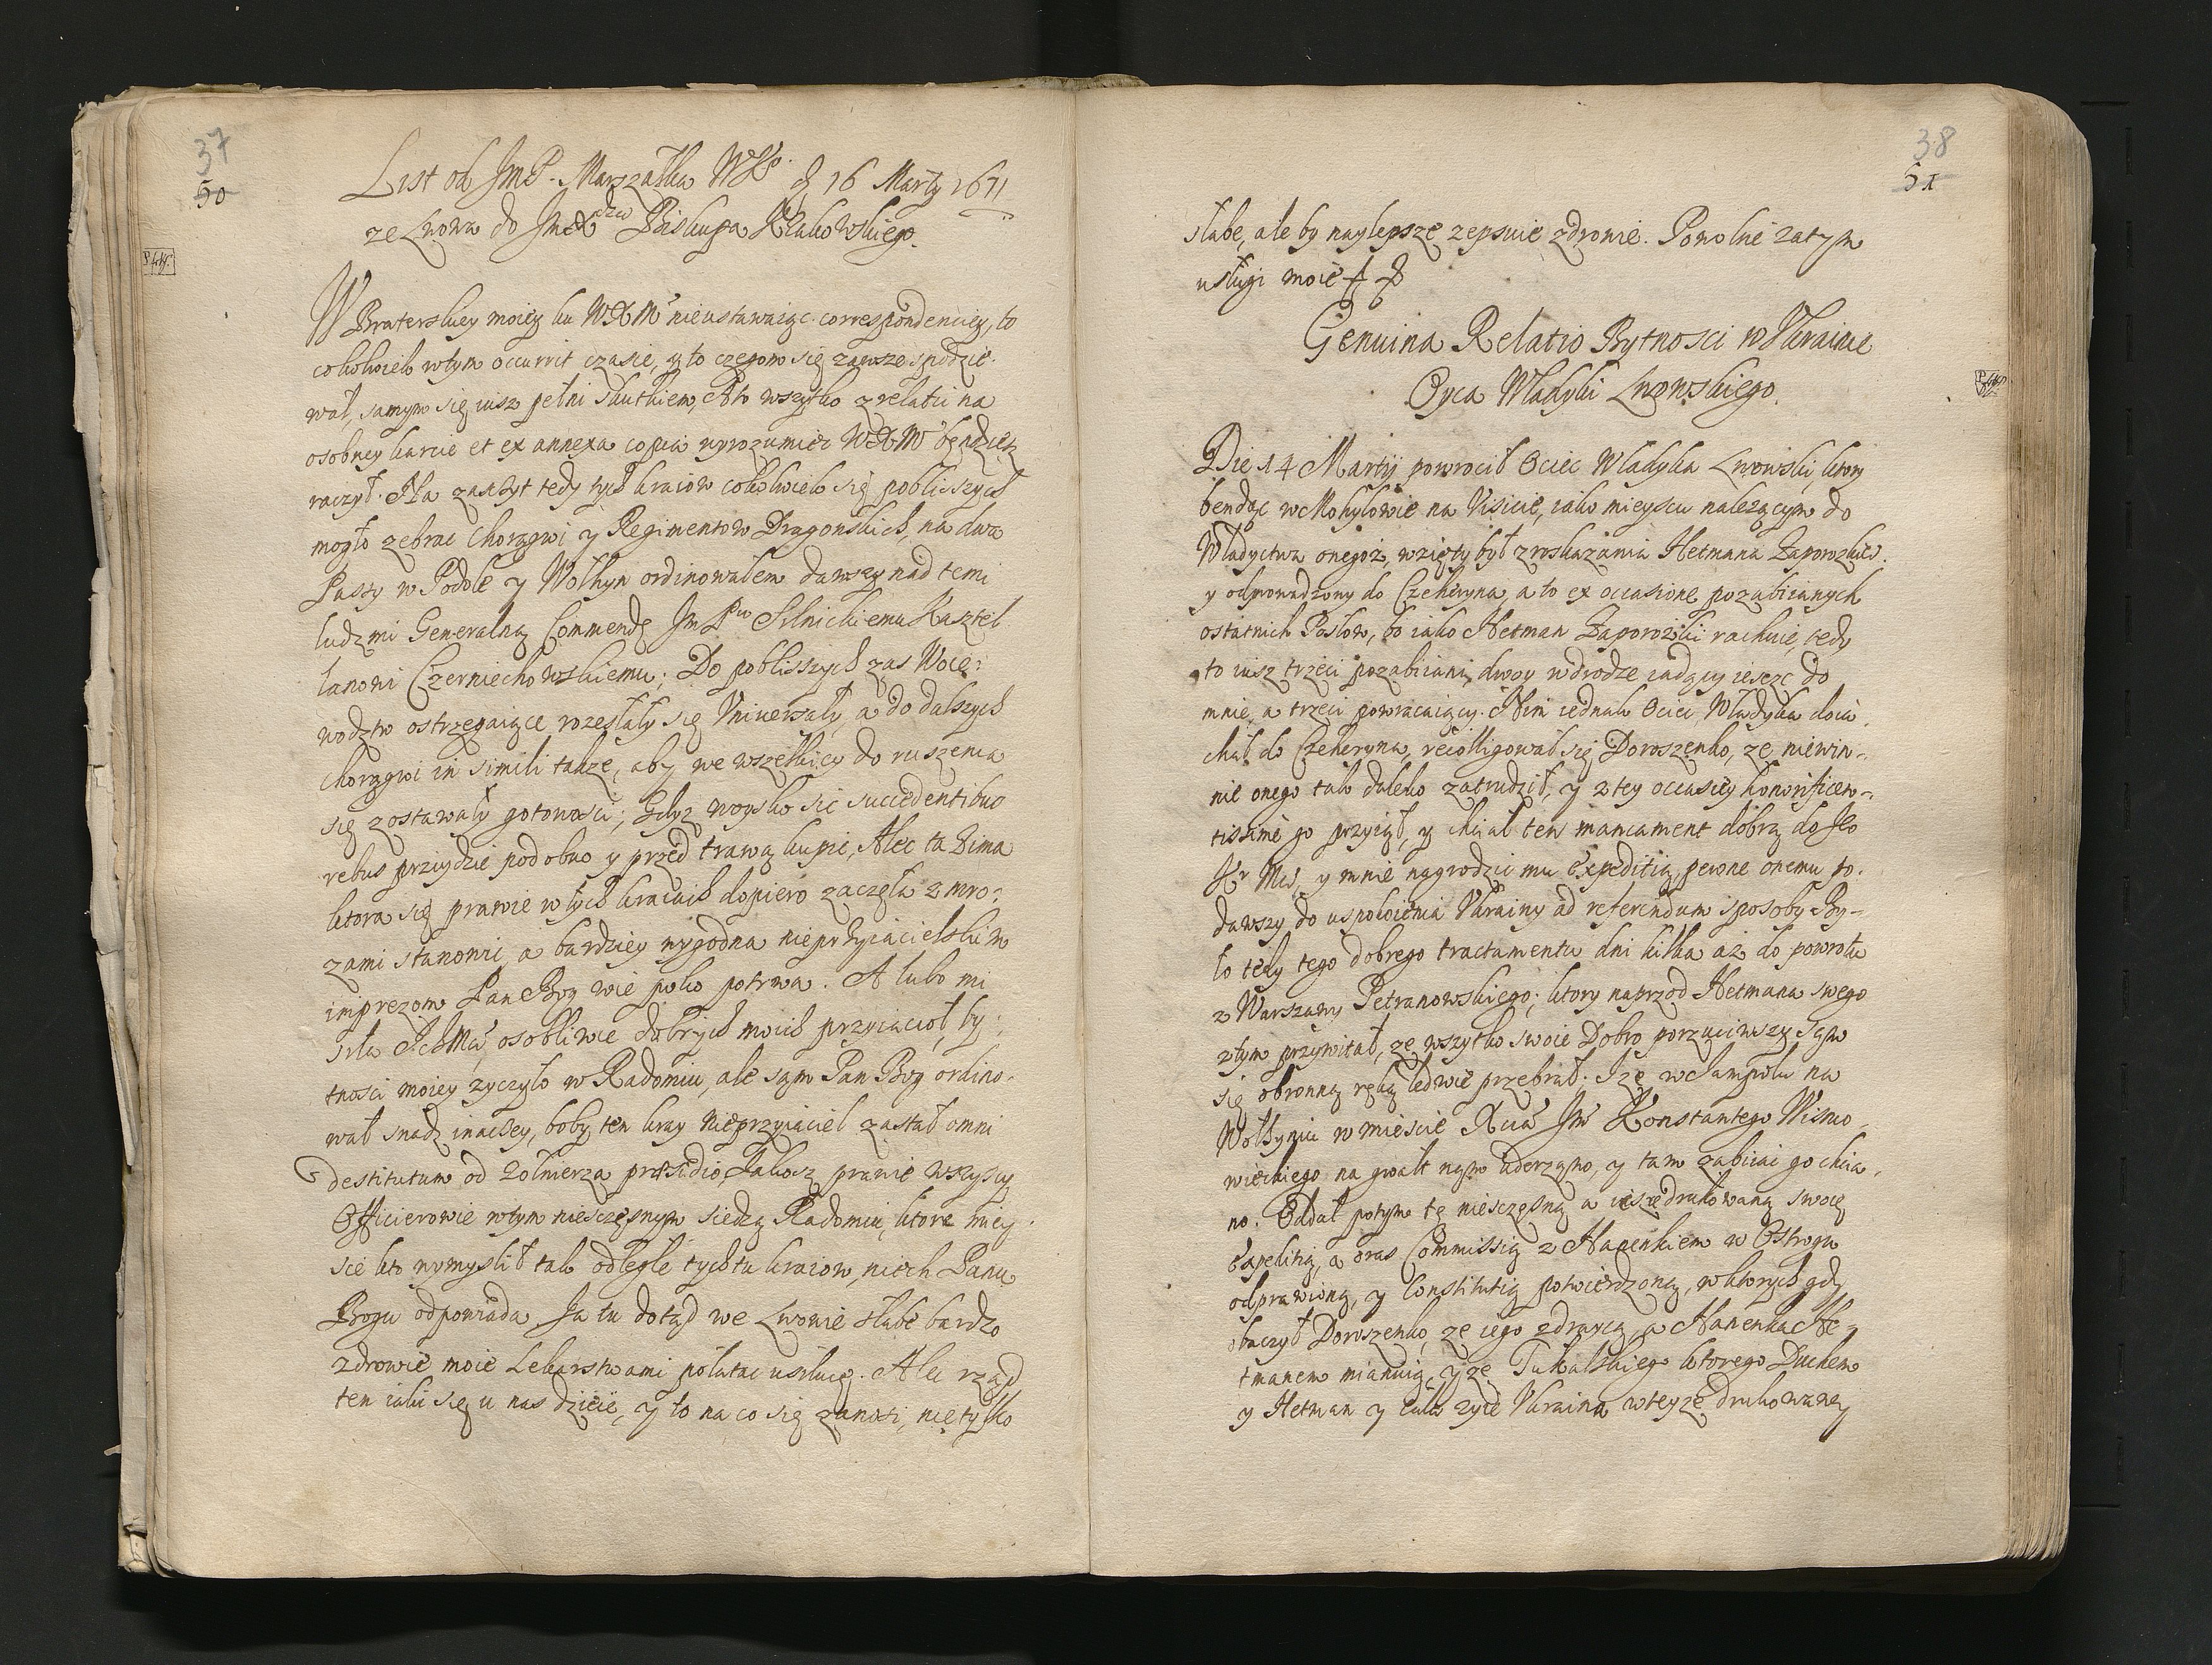 37
50
List od JmP. Marszałka WKo. d 16 Marty 1671
ze Lwowa do JmX dza Biskupa Krakowskiego.
W Braterskiey moiey ku WXMć nieustawaiąc correspondenciey, to
cokolwiek wtym occurrit czasie, y to czegom się zawsze spodzie-
wał, samym się iusz pełni skutkiem, A to wszytko z relatii na
osobney karcie et ex annexa copia wyrozumiec WXMć bendziesz
raczył. Na zaszczyt tedy tych kraiow cokolwiek się pobliszszych
mogło zebrac Chorągwi y Regimentow Dragonskich, na dwa
Passy w Podole y Wołhyn ordinowałem dawszy nad temi
ludzmi Generalną Commendę Jm Pu Silnickiemu Kasztel-
lanowi Czerniechowskiemu; Do pobliszszych zas Woie-
wodztw ostrzegaiące rozesłały się Vniuersały, a do dalszych
chorągwi in simili także, aby we wszelkiey do ruszenia
się zostawały gotowosci; Gdyz woysko sic succedentibus
rebus przidzie podobno y przed trawą kupic, Alec ta Zima
ktora się prawie wtych kraiach dopiero zaczęła z mro-
zami stanowi, a bardziey wygodna nieprzyiacielskim
imprezom Pan Bog wie poko potrwa. A lubo mi
siła IchMć osobliwie dobrych moich przyiacioł, by-
tnosci moiey zyczyło w Radomiu, ale sąm Pan Bog ordino-
wał snadz inaczey, boby ten kray Nieprzyiaciel zastał omni
destitutum od Zołnierza praesidio, Jakosz prawie wszyscy
Officierowie wtym niesczęsnym siedzą Radomiu, ktore miey-
sce kto wymyslił tak odległe tych tu kraiow, niech Panu
Bogu odpowiada. Ja tu dotąd we Lwowie słabe bardzo
zdrowie moie Lekarstwami połatac usiłuię. Alec rząd
ten iaki się u nas dzieie, y to na co się zanosi, nie tylko
38
51
słabe, ale by naylepsze zepsuie zdrowie. Powolne zatym
usługi moie
Genuina Relatio Bytnosci w Vkrainie
Oyca Władyki Lwowskiego.
Die 14 Martij powrocił Ociec Władyka Lwowski, ktory
bendąc w Mohylowie na Visicie, iako mieyscu nalezącym do
Władyctwa onegoż, wzięty był z roskazania Hetmana Zaporozkieo.
y odprowadzony do Czeheryna, a to ex occasione pozabiianych
ostatnich Posłow, bo iako Hetman Zaporozki rachuie, tedy
to iusz trzeci pozabiiani, dwoy wdrodze iadący ieszcze do
mnie, a trzeci powracaiący. Nim iednak Ociec Władyka doie-
chał do Czeheryna, recolligował się Doroszenko, ze niewin-
nie onego tak daleko zatrudził, y z tey occasiey honorificen-
tissime go przyiął, y chciał ten mancament dobrą do Jeo
Kr Mci, y mnie nagrodzic mu Expeditią, pewne onemu po-
dawszy do uspokoienia Vkrainy ad referendum sposoby. By-
ło tedy tego dobrego tractamentu dni kilka aż do powrotu
z Warszawy Petranowskiego; ktory naprzod Hetmana swego
z tym przywitał, ze wszytko swoie Dobro porzuciwszy Sąm
się obronną ręką ledwie przebrał. I ze w Jampolu na
Wołhyniu w miescie Xcia Jmć Konstantego Wisnio-
wieckiego na gwałt nąm uderząno, y tam zabiiac go chcia-
no. Oddał potym tę niesczęsną a iescze drukowaną swoię
Expeditią, a oras Commissią z Hanenkiem w Ostrogu
odprawioną, y Constitutią potwierdzoną, wktorych gdy
obaczył Doroszenko, ze iego zdraycą, a Hanenka He-
tmanem mianuią, y ze Tukalskiego ktorego Duchem
y Hetman y cała zyie Vkraina wteyze drukowaney